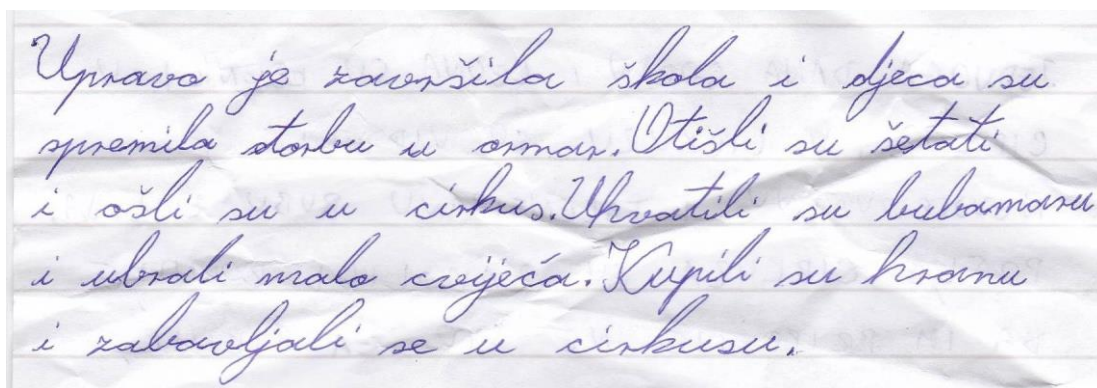 Upravo je završila škola i djeca su
spremila torbu u ormar. Otišli su šetati
i ošli su u cirkus. Uhvatili su bubamaru
i ubrali malo cvijeća. Kupili su hranu
i zabavljali se u cirkusu.